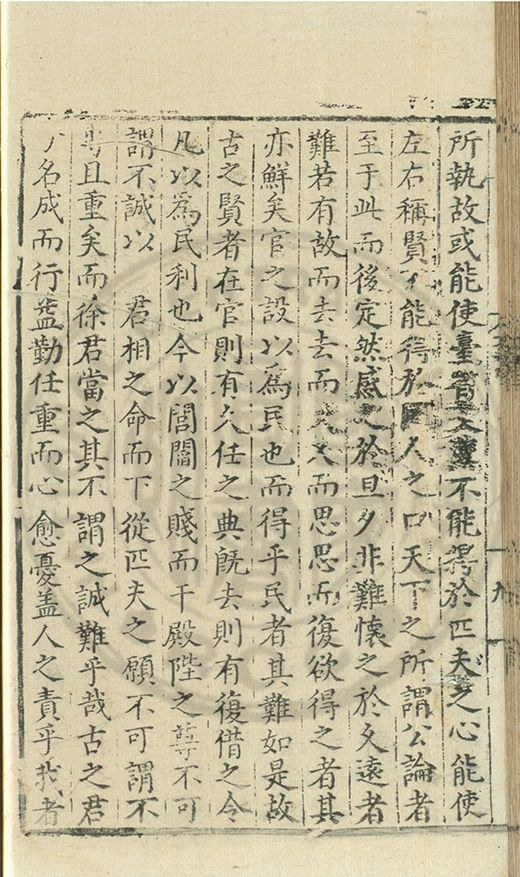 所執故或能使臺省薦不能得於匹夫之心能使
左右稱賢不能得於國人之口天下之所謂公論者
至于此而後定然感之於旦夕非難懷之於久遠者
難若有故而去去而久久而思思而復欲得之者其
亦鮮矣官之設以為民也而得乎民者其難如是故
古之賢者在官則有久任之典旣去則有復借之令
凡以為民利也今以閭閻之賤而干殿陛之尊不可
謂不誠以 君相之命而下從匹夫之願不可謂不
尊且重矣而徐君當之其不謂之誠難乎哉古之君
子名成而行益勤任重而心愈憂盖人之責乎我者